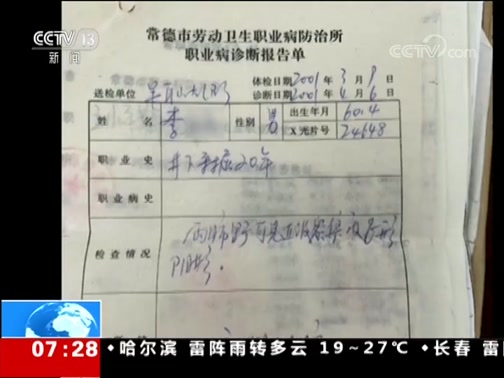 CCTV 13
新闻
CCTV.com
常德市劳动卫生职业病防治所
职业病诊断报告单
体检日期2001年3月9日
送检单位
诊断日期2001年4月6日
姓名 李 性别 男 出生年月 60.4
X光片号 24648
职业史 井下 20年
职业病史
检查情况 两肺野可见
阴影.
07:28 ◆哈尔滨 雷阵雨转多云 19~27℃ ◆长春 雷